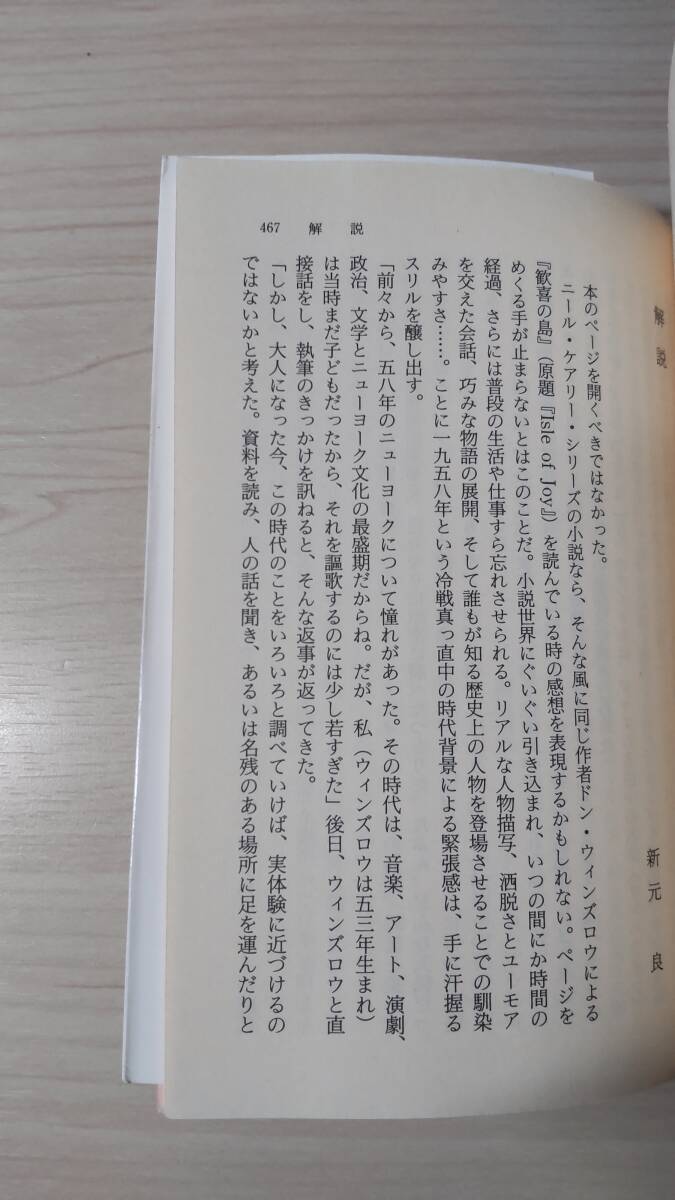 467 解説
解説
新元 良
本のページを開くべきではなかった。
ニール・ケアリー・シリーズの小説なら、そんな風に同じ作者ドン・ウィンズロウによる
『歓喜の島』（原題『Isle of Joy』）を読んでいる時の感想を表現するかもしれない。ページを
めくる手が止まらないとはこのことだ。小説世界にぐいぐい引き込まれ、いつの間にか時間の
経過、さらには普段の生活や仕事すら忘れさせられる。リアルな人物描写、洒脱さとユーモア
を交えた会話、巧みな物語の展開、そして誰もが知る歴史上の人物を登場させることでの馴染
みやすさ……。ことに一九五八年という冷戦真っ直中の時代背景による緊張感は、手に汗握る
スリルを醸し出す。
「前々から、五八年のニューヨークについて憧れがあった。その時代は、音楽、アート、演劇、
政治、文学とニューヨーク文化の最盛期だからね。だが、私（ウィンズロウは五三年生まれ）
は当時まだ子どもだったから、それを謳歌するのには少し若すぎた」後日、ウィンズロウと直
接話をし、執筆のきっかけを訊ねると、そんな返事が返ってきた。
「しかし、大人になった今、この時代のことをいろいろと調べていけば、実体験に近づけるの
ではないかと考えた。資料を読み、人の話を聞き、あるいは名残のある場所に足を運んだりと